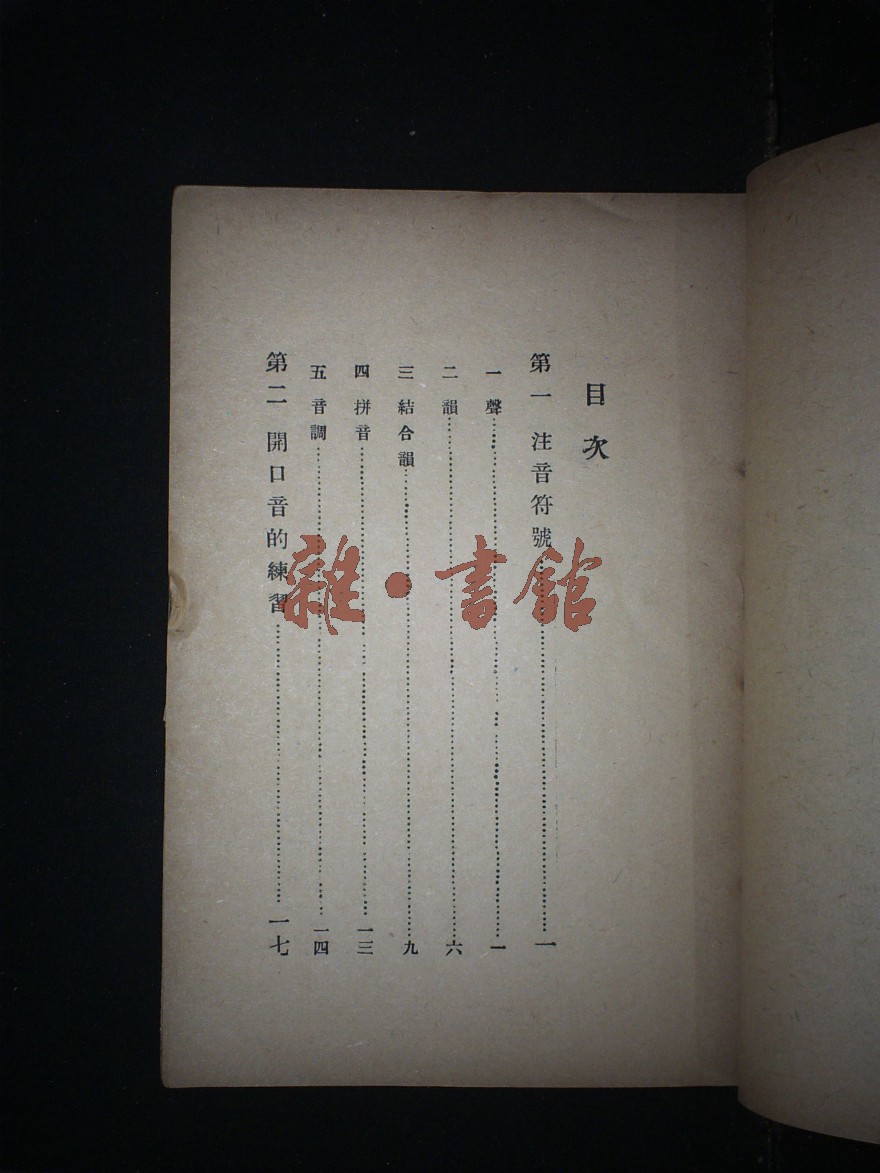 目次
第一 注音符號 一
一 聲 一
二 韻 六
三 結合韻 九
四 拼音 一三
五 音調 一四
第二 開口音的練習 一七
雜·書館